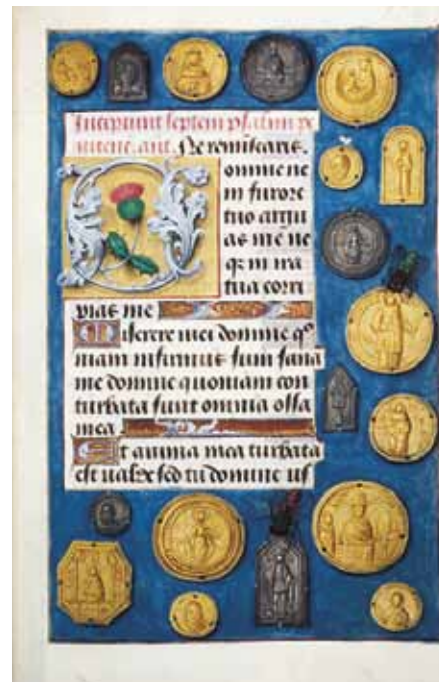 Incipiunt septem psalmi pe
nitenc. ant. Ne reminiscaris.
omine ne
in furore
tuo argu
as me ne
q3 in ira
tua corri
pias me
Miserere mei domine qo
niam infirmus sum sana
me domine quoniam con
turbata sunt omnia ossa
mea
Et anima mea turbata
est valde sed tu domine us